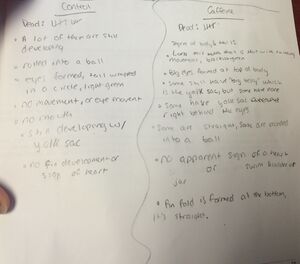 Control
Dead:
• A lot of them are still
developing
• rolled into a ball
• eyes formed, tail wrapped
in a circle, light green
• no movement, or eye movement
• no mouth
• still developing w/
yolk sac
• no fin development or
sign of heart
Caffeine
Dead:
Signs of body & tail
• Long
movement,
• Big eyes formed at top of body
• Some still have "big belly" which
is the yolk sac, but some have none
• Some have yolk sac
right behind the eyes
• Some are straight, some are curled
into a ball
• no apparent sign of a heart
or swim bladder or
jaw
• Fin fold is formed at the bottom,
it's straight.